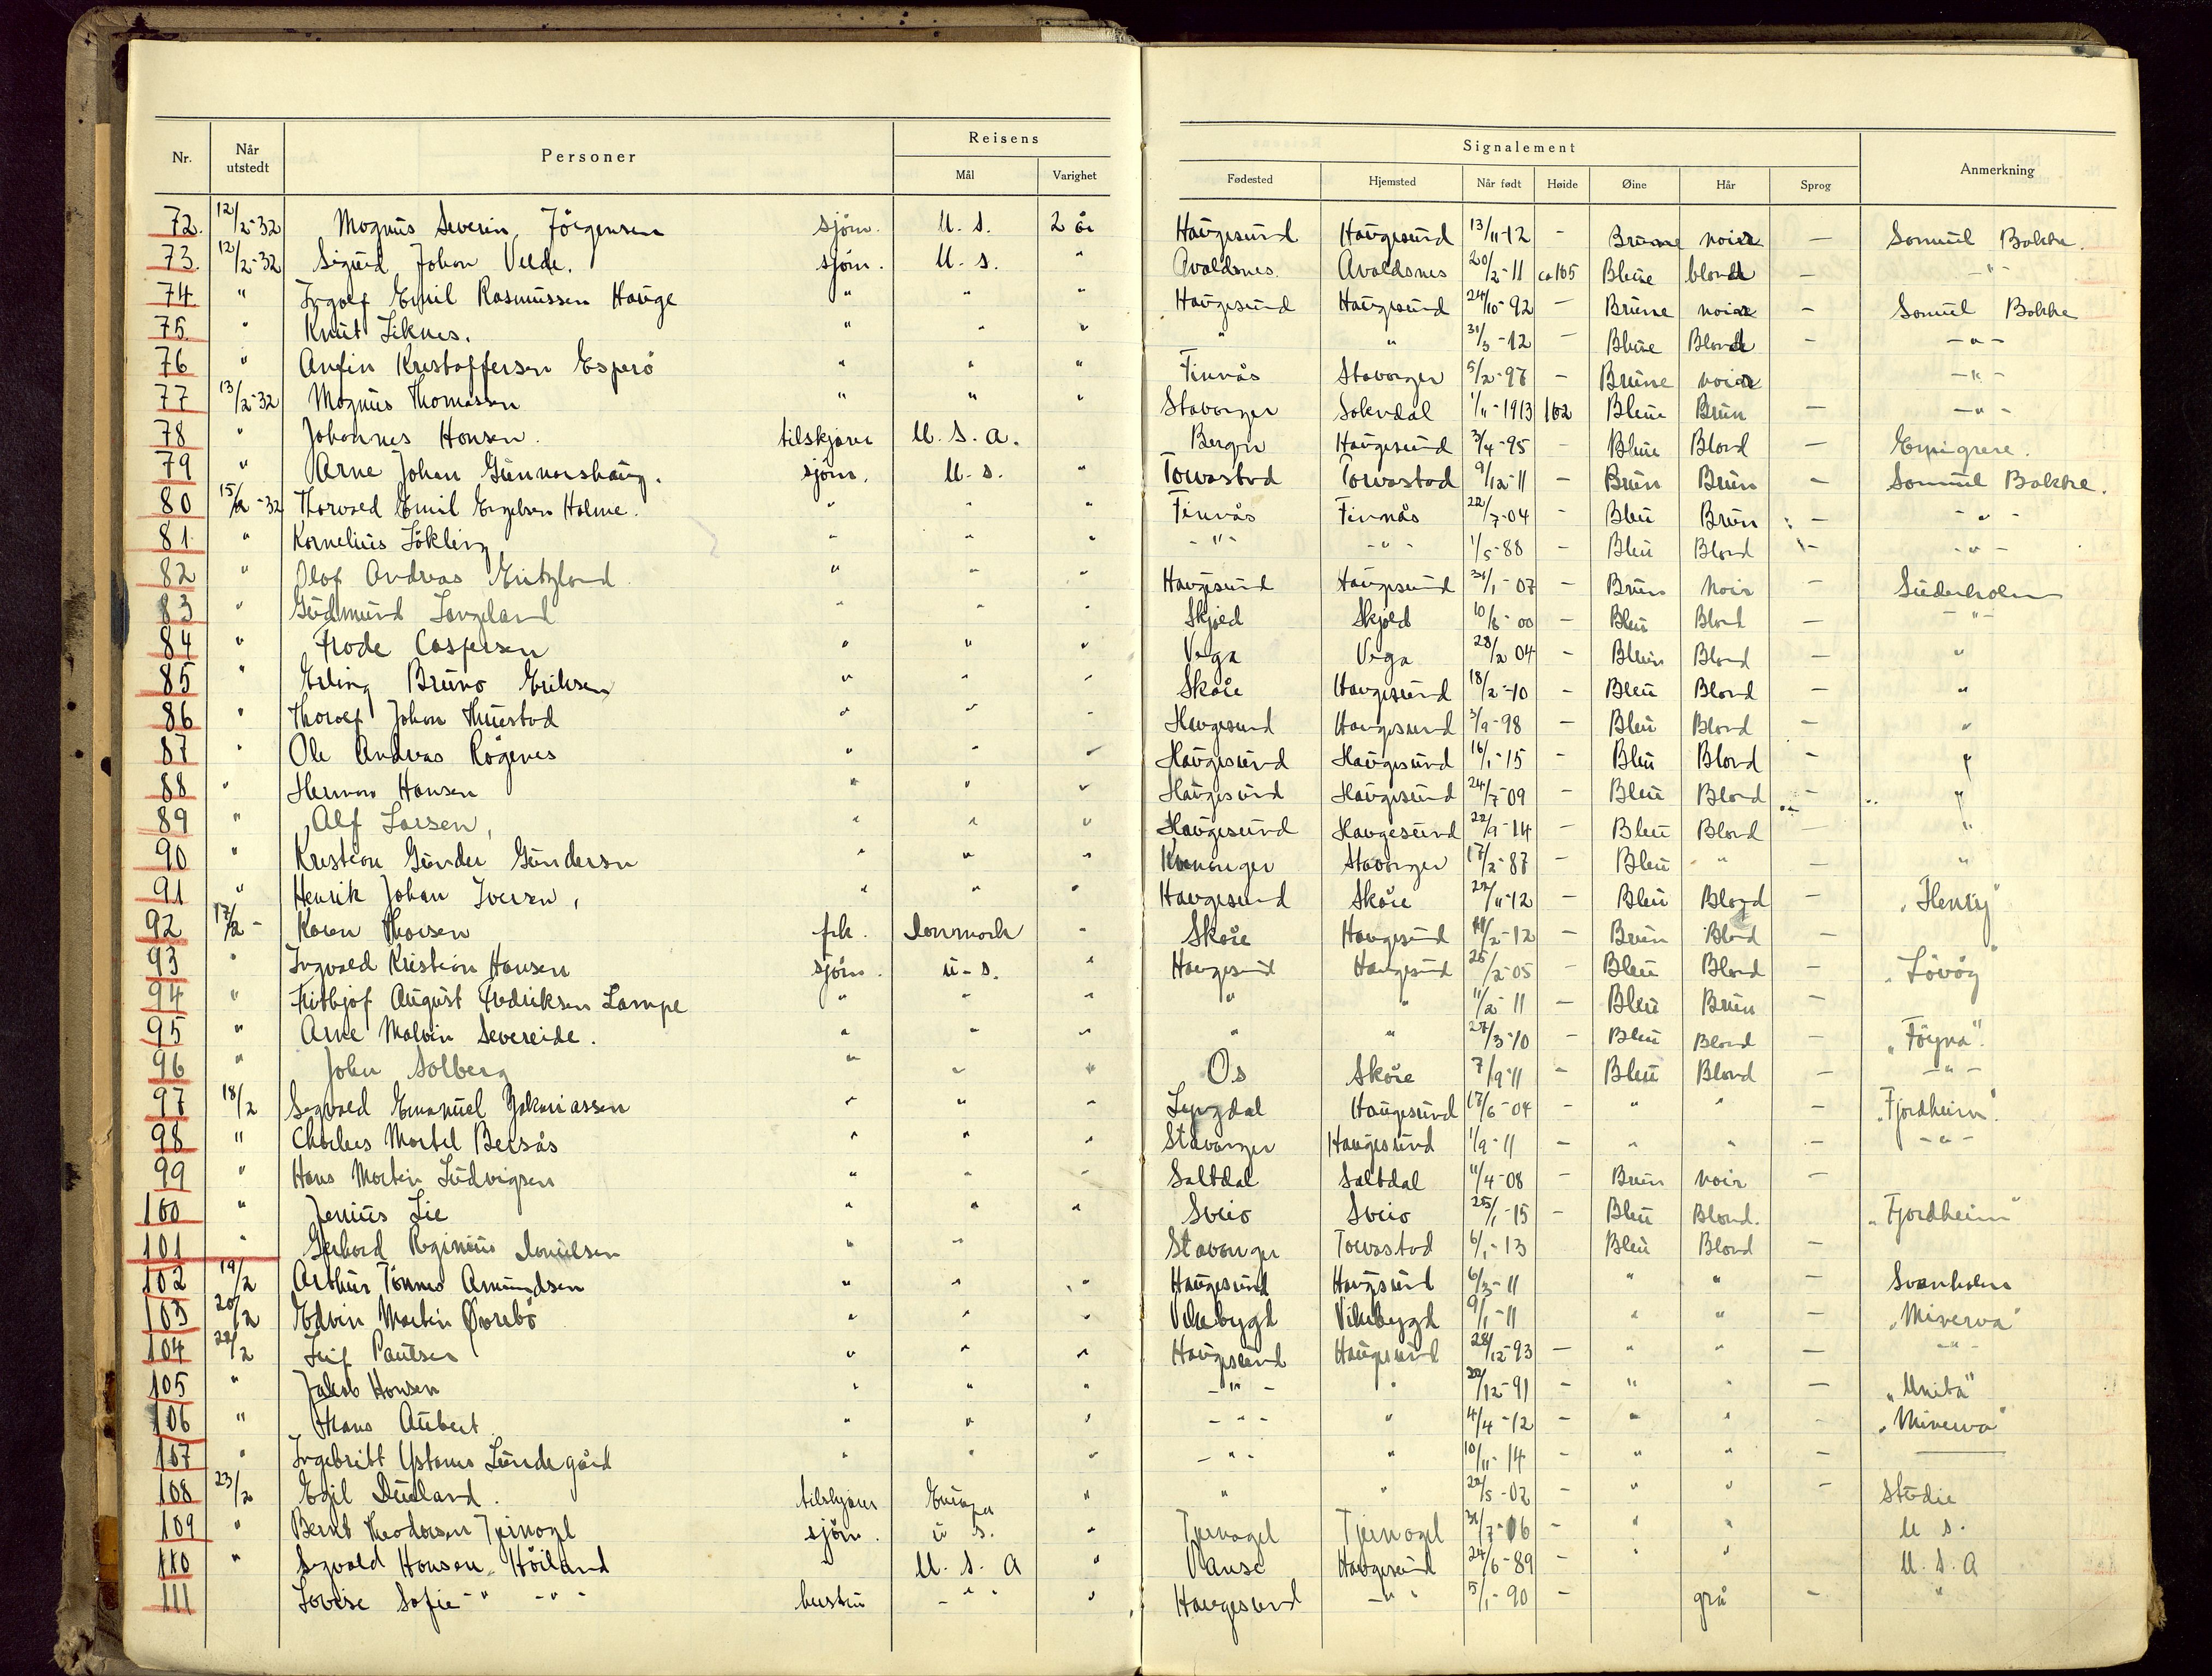 Nr. Når utstedt Personer Reisens Mål Varighet Signalement Fødested Hjemsted Når født Høide Øine Hår Sprog Anmerkning
72. 12/2-32 Magnus Severin Jörgensen sjöm. U. S. 2 år Haugesund Haugesund 13/11-12 - Brune noire - Samuel Bakke.
73. 12/2-32 Sigurd Johan Velde. sjöm. U. S. " Avaldsnes Avaldsnes 20/2-11 ca 165 Bleue blonde - -"-
74 " Ingolf Emil Rasmussen Hauge " " " Haugesund Haugesund 24/10-92 - Brune noire - Samuel Bakke
75. " Knut Liknes. " " " " " 31/3-12 - Bleue Blonde - -"-
76 " Anfin Kristoffersen Esperö " " " Finnås Stavanger 5/2-97 - Brune noire -"-
77 13/2-32 Magnus Thomassen " " " Stavanger Sokndal 1/11-1913 162 Bleue Brun - -"-
78 " Johannes Hansen. tilskjærer U. S. A. Bergen Haugesund 3/4-95 - Bleue Blond - Emigrere.
79 " Arne Johan Gunnarshaug. sjöm. U. S. " Torvastad Torvastad 9/12-11 - Brun Brun - Samuel Bakke.
80 15/2-32 Thorvald Emil Engelsen Holme. " " " Finnås Finnås 22/7-04 - Bleu Brun - -"-
81 " Kornelius Lökling " " " -"- -"- 1/5-88 - Bleu Blond - -"-
82 " Olof Andreas Eritzland " " " Haugesund Haugesund 31/1-07 - Brun Noir - Suderholm
83 " Gudmund Langeland " " " Skjold Skjold 10/6-00 - Bleu Blond - -"-
84 " Frode Caspersen " " " Vega Vega 28/2 04 - Bleu Blond - "
85 " Erling Bruno Eriksen " " " Skåre Haugesund 18/2-10 - Bleu Blond - "
86 " Thorolf Johan Thuestad " " " Haugesund Haugesund 3/9-98 - Bleu Blond - "
87 " Ole Andreas Rögenes " " " Haugesund Haugesund 16/1-15 - Bleu Blond - "
88 " Herman Hansen " " " Haugesund Haugesund 24/7-09 - Bleu Blond - "
89 " Alf Larsen, " " " Haugesund Haugesund 22/9-14 - Bleu Blond - "
90 " Kristian Gunder Gundersen " " " Stavanger 17/2-87 - Bleu " - "
91 " Henrik Johan Iversen, " " " Haugesund Skåre 22/11-12 - Bleu Blond - "Henry"
92 17/2- Karen Thorsen frk. Danmark " Skåre Haugesund /2-12 - Brun Blond -
93 " Ingvald Kristian Hansen sjöm. U-S. " Haugesund Haugesund 25/2-05 - Bleu Blond - "Lövög"
94 " Fritbjof August Fredriksen Lampe " " " " " 11/2-11 - Bleu Brun -
95 " Arne Malvin Severeide. " " " " " 27/3-10 - Bleu Blond - "Föyna".
96 " John Solberg " " " Os Skåre 7/9-11 - Bleu Blond - -"-
97 18/2 Sigvald Emanuel Zakariassen " " " Lyngdal Haugesund 17/6-04 - " " - "Fjordheim".
98 " Charles Martel Bersås " " " Stavanger Haugesund 1/9-11 - " " - -"-
99 " Hans Martin Ludvigsen " " " Saltdal Saltdal 11/4-08 Brun noir -
100 " Jenius Lie " " " Sveio Sveio 25/1-15 - Bleu Blond. "Fjordheim"
101 " Gerhard Reginius Danielsen " " Stavanger Torvastad 6/1-13 Bleu Blond -
102 19/2 Arthur Tönnes Amundsen " " " Haugesund Haugesund 6/3-11 " " - Svanholm
103 20/2 Edvin Martin Øvrebö " " " Vikebygd Vikebygd 9/1-11 " " - "Minerva"
104 22/2 Leif Paulsen " " " Haugesund Haugesund 28/12-93 - " " - -"-
105 " Jakob Hansen " " " -"- " 20/12-91 - " " - "Unita"
106 " Hans Aubert " " " -"- " 4/4-12 - " " - "Minerva"
107 " Ingebritt Ystanes Lundegård " " " -"- " 10/11-14 - " " -
108 23/2 Egil Dueland. tilskjærer Europa " " " 22/5-02 - " " - Studie
109 " Bernt Theodorsen Tjernagel sjöm. U S. " Tjernagel Tjernagel 31/7-06 - " " U S.
110 " Sigvald Hansen Höiland " U. S. A " Vanse Haugesund 24/6-89 - " " U. S. A
111 Lovise Sofie -"- -"- hustru -"- " Haugesund -"- 5/1-90 - grå - "